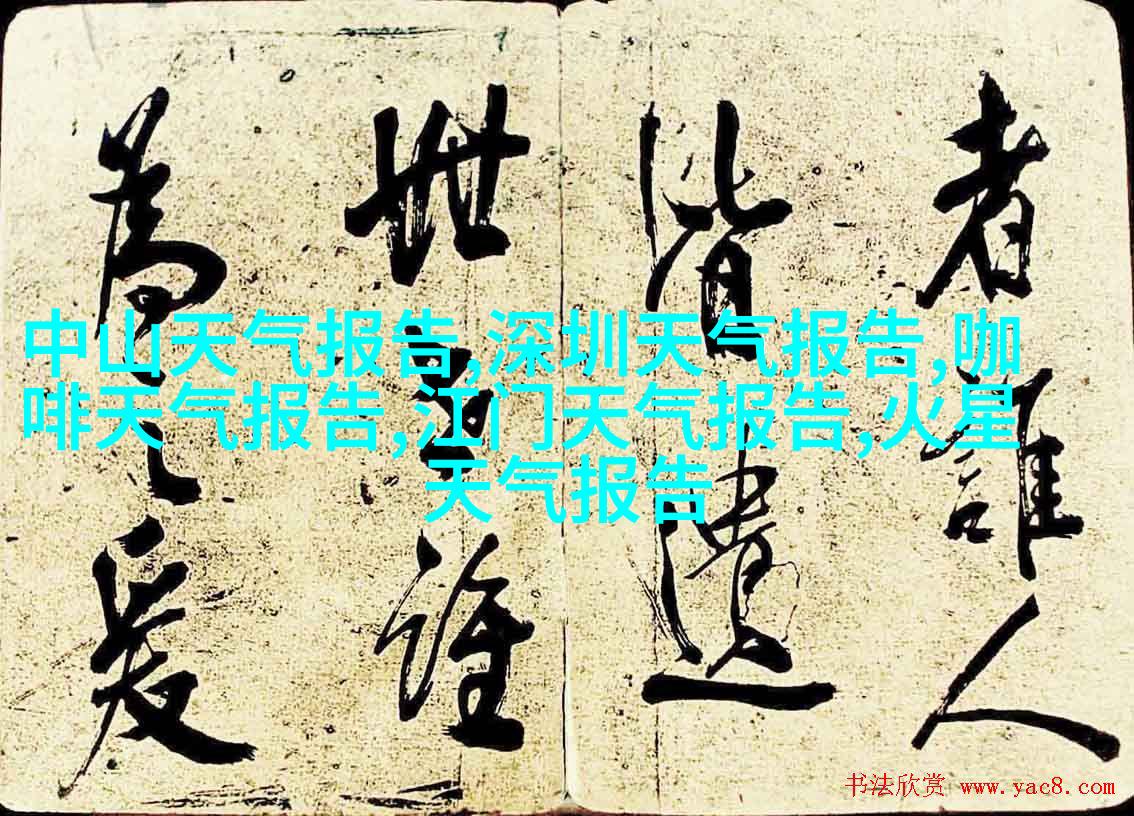 者誰人
皆遺
世誰
為之爰
中山天气报告,深圳天气报告,咖
啡天气报告,江门天气报告,火星
天气报告
书法欣赏 www.yac8.com